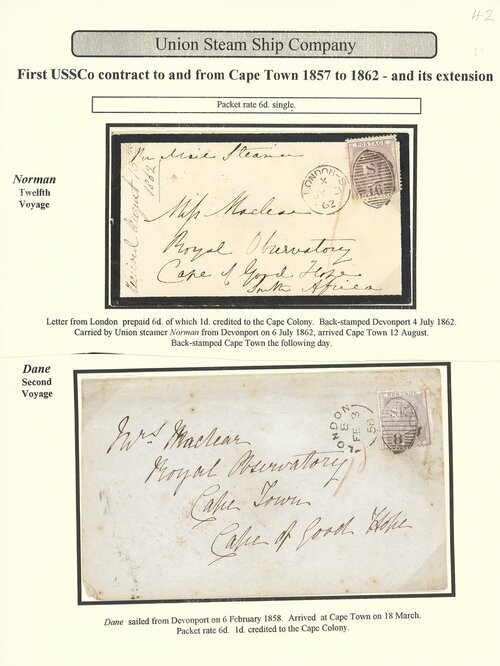 42
Union Steam Ship Company
First USSCo contract to and from Cape Town 1857 to 1862 - and its extension
Packet rate 6d. single.
Norman
Twelfth
Voyage
Per Mail Steamer
Received August
1862
LONDON-S
X
62
SE
16
Miss Maclear
Royal Observatory
Cape of Good Hope
South Africa
Letter from London prepaid 6d. of which 1d. credited to the Cape Colony. Back-stamped Devonport 4 July 1862.
Carried by Union steamer Norman from Devonport on 6 July 1862, arrived Cape Town 12 August.
Back-stamped Cape Town the following day.
Dane
Second
Voyage
POSTAGE
LONDON
8
FE 3
58
SE
8
Mrs Maclear
Royal Observatory
Cape Town
Cape of Good Hope
Dane sailed from Devonport on 6 February 1858. Arrived at Cape Town on 18 March.
Packet rate 6d. 1d. credited to the Cape Colony.